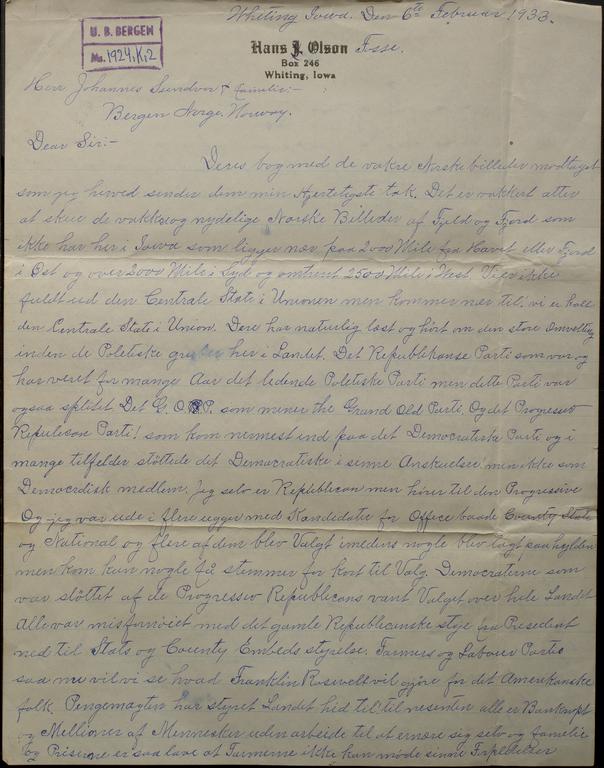 Whiting Iowa. Den 6te Februar 1933.
U. B. BERGEN
Ms. 1924, K, 2
Hans J. Olson Fosse.
Box 246
Whiting, Iowa
Herr Johannes Sundvor & familie:-
Bergen Norge. Norway.
Dear Sir:-
Deres bog med de vakre Norske billeder modtaget
som jeg herved sender dem min Hjerteligste tak. Det er vakkert atter
at skue de vakker og nydelige Norske Billeder af Fjeld og Fjord som
ikke har her i Iowa som ligger nær paa 2000 Mile fra Havet eller Fjord
i Øst og over 2000 Mile i Syd og omtrent 2500 Mile i West. Vi er ikke
fuldt ud den Centrale Stat i Unionen men kommer nær til; vi er kalt
den Centrale State i Union. Dere har naturlig læst og hørt om den store Omvelting
inden de Poletiske her i Landet. Det Republikanse Parti som var og
har været for mange Aar det ledende Poletiske Parti men dette Parti var
ogsaa splitet Det G. O. P. som mener the Grand Old Parti. Og det Progressiv
Republican Parti! som kom nermest ind paa det Democratiske Parti og i
mange tilfelder støttede det Democratiske i sinne Anskuelser men ikke som
Democratisk medlem. Jeg selv er Republican men hører til den Progressive
Og jeg var ude i flere uger med Kandidater for Office baade County State
og National og flere af dem blev Valgt imedens nogle blev
men kom kun nogle få stemmer for kort til Valg. Democraterne som
var støttet af de Progressiv Republicans vant Valget over hele Landet
Alle var misfornøiet med det gamle Republicanske styre fra President
ned til Stats og County Embeds styrelse. Farmers og Labour Partis
saa nu vil vi se hvad Franklin Rosevelt vil gjøre for det Amerikanske
folk. Pengemagten har styret Landet hid til! til nesenten alle er Bankrupt
og Millioner af Mennesker uden arbeide til at ernære sig selv og familie
og Priserne er saa lave at Farmerne ikke kan møde sinne